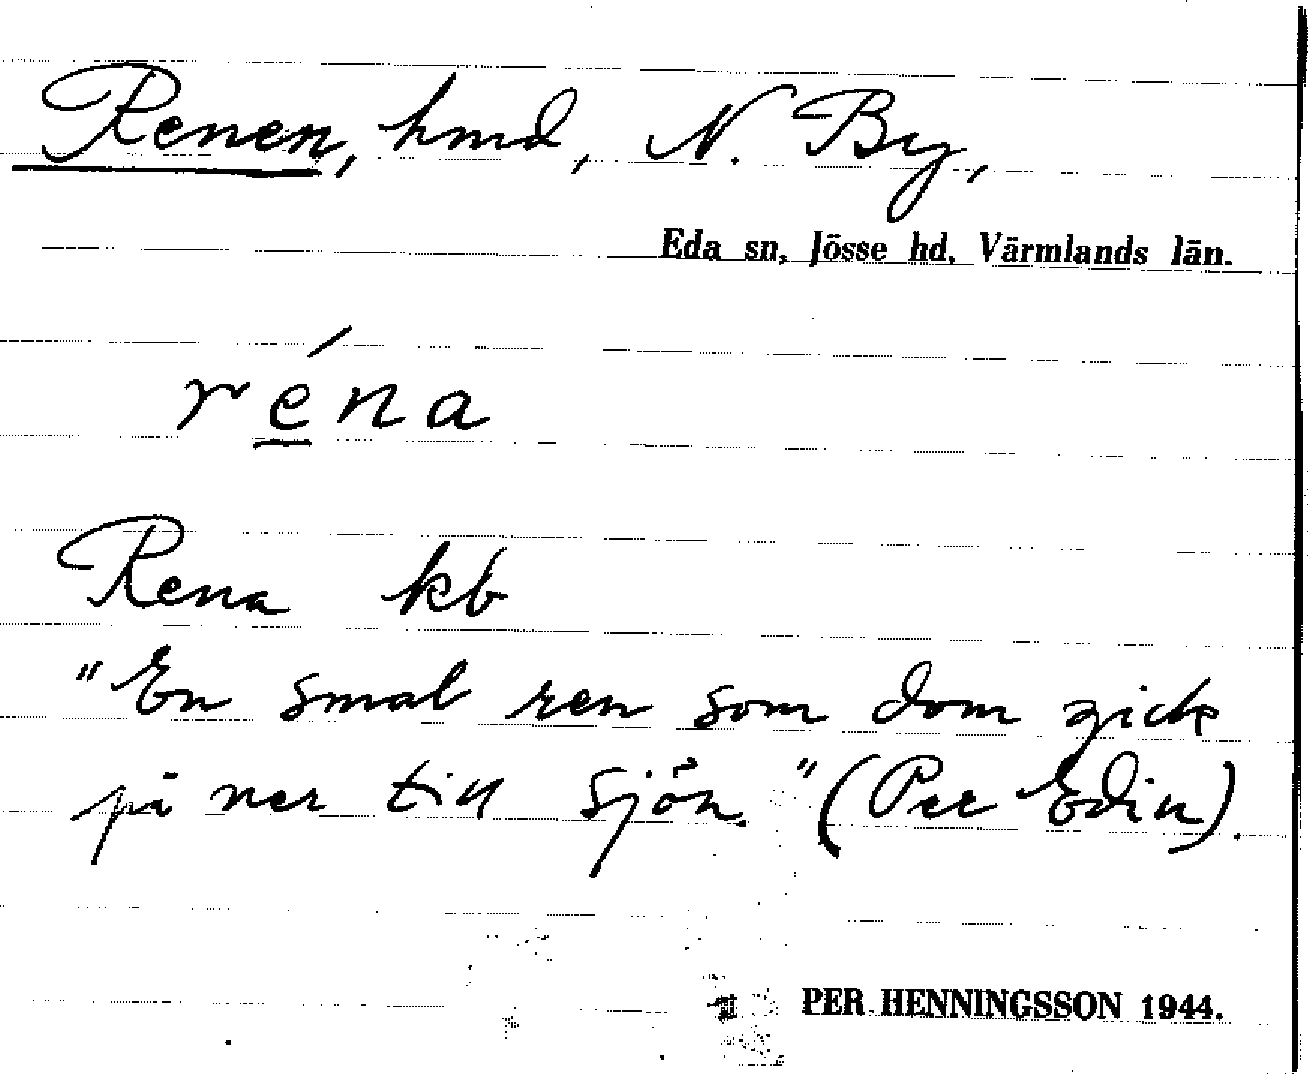 Renen, hmd, N. By,
Eda sn, Jösse hd, Värmlands län.
réna
Rena kb
"En smal ren som dom gick
på ner till sjön." (Per Edin).
PER HENNINGSSON 1944.